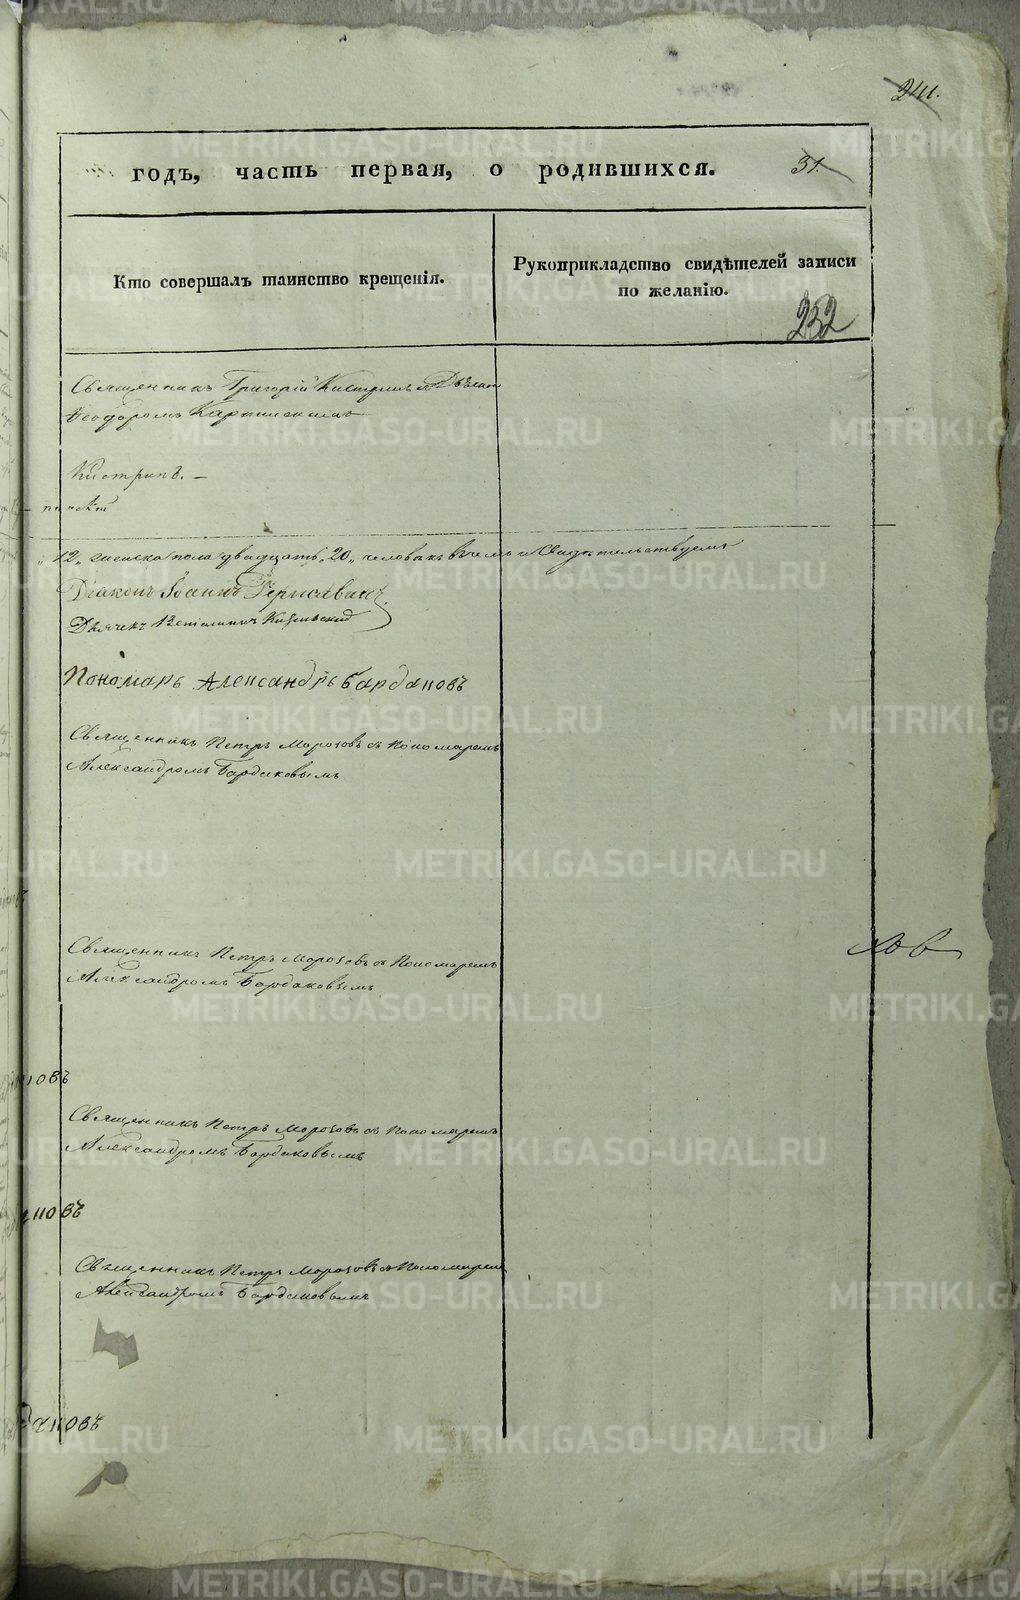 241.
годъ, часть первая, о родившихся. 31.
Кто совершалъ таинство крещенія.
Рукоприкладство свидѣтелей записи
по желанію.
252
Священникъ Григорій
Ѳеодоромъ
12, женска пола двадцать „20„ человекъ в чемъ и свидѣтельствуемъ
Діаконъ Іоаннъ
Дьячекъ
Пономарь Александръ Бардаковъ
Священникъ Петръ Морозовъ съ Пономаремъ
Александромъ Бардаковымъ
Священникъ Петръ Морозовъ съ Пономаремъ
Александромъ Бардаковымъ
Священникъ Петръ Морозовъ съ Пономаремъ
Александромъ Бардаковымъ
Священникъ Петръ Морозовъ съ Пономаремъ
Александромъ Бардаковымъ
METRIKI.GASO-URAL.RU